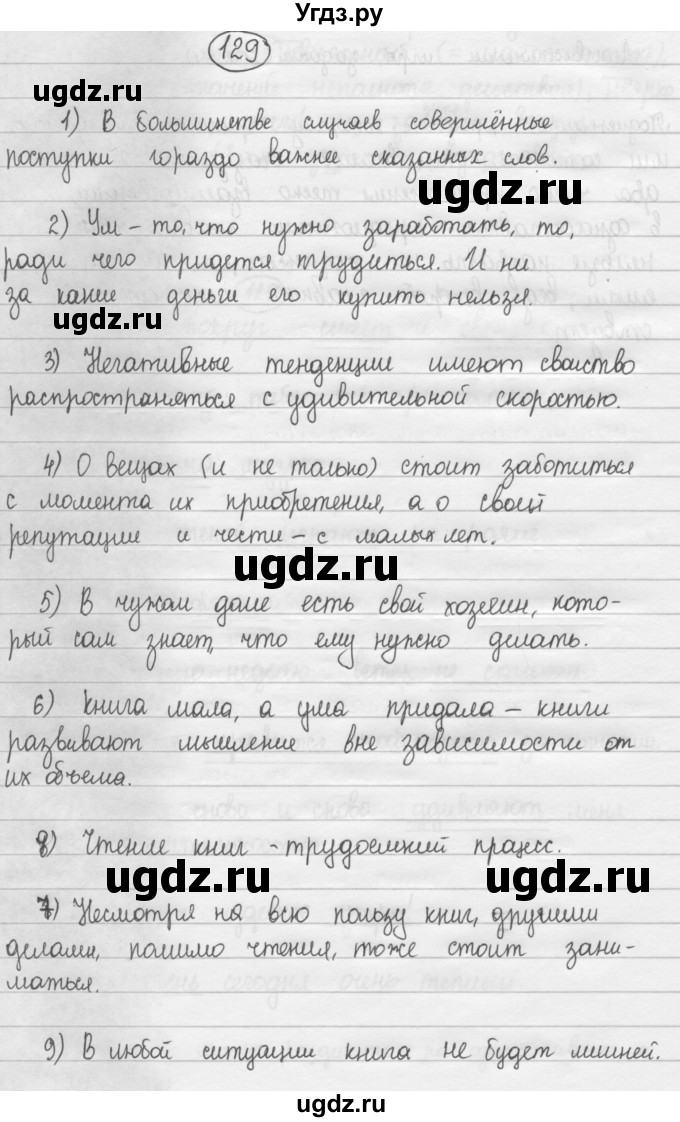 Угдз.ру
129
ugdz.ru
1) В большинстве случаев совершённые
поступки гораздо важнее сказанных слов.
ugdz.ru
2) Ум – то, что нужно заработать, то,
ради чего придется трудиться. И ни
за какие деньги его купить нельзя.
ugdz.ru
3) Негативные тенденции имеют свойство
распространяться с удивительной скоростью.
4) О вещах (и не только) стоит заботиться
с момента их приобретения, а о своей
репутации и чести – с малых лет.
ugdz.ru
5) В чужом доме есть свой хозяин, кото-
рый сам знает, что ему нужно делать.
ugdz.ru
6) Книга мала, а ума придала – книги
развивают мышление вне зависимости от
их объема.
8) Чтение книг - трудоемкий процесс.
ugdz.ru ugdz.ru
7) Несмотря на всю пользу книг, другими
делами, помимо чтения, тоже стоит зани-
маться.
9) В любой ситуации книга не будет лишней.
ugdz.ru